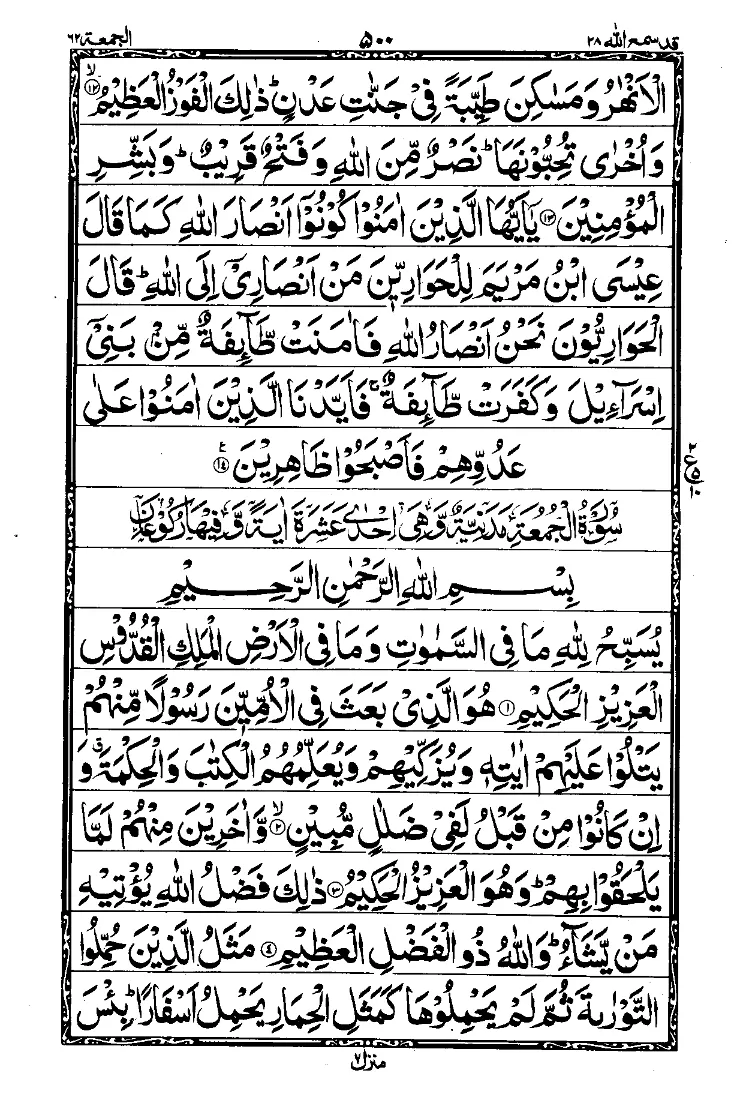 قد سمع الله ٢٨
٥٠٠
الجمعة ٦٢
الْاَنْهٰرُ وَمَسٰكِنَ طَيِّبَةً فِيْ جَنّٰتِ عَدْنٍ ؕ ذٰلِكَ الْفَوْزُ الْعَظِيْمُ ۙ﴿۱۲﴾
وَاُخْرٰى تُحِبُّوْنَهَا ؕ نَصْرٌ مِّنَ اللّٰهِ وَفَتْحٌ قَرِيْبٌ ؕ وَبَشِّرِ
الْمُؤْمِنِيْنَ ﴿۱۳﴾ يٰۤاَيُّهَا الَّذِيْنَ اٰمَنُوْا كُوْنُوْۤا اَنْصَارَ اللّٰهِ كَمَا قَالَ
عِيْسَى ابْنُ مَرْيَمَ لِلْحَوَارِيّٖنَ مَنْ اَنْصَارِيْۤ اِلَى اللّٰهِ ؕ قَالَ
الْحَوَارِيُّوْنَ نَحْنُ اَنْصَارُ اللّٰهِ فَاٰمَنَتْ طَّآئِفَةٌ مِّنْۢ بَنِيْۤ
اِسْرَآءِيْلَ وَكَفَرَتْ طَّآئِفَةٌ ۚ فَاَيَّدْنَا الَّذِيْنَ اٰمَنُوْا عَلٰى
عَدُوِّهِمْ فَاَصْبَحُوْا ظَاهِرِيْنَ ﴿۱۴﴾ ع
٢
ع
٥
١٠
سُوْرَةُ الْجُمُعَةِ مَدَنِيَّةٌ وَّهِيَ اِحْدٰى عَشَرَةَ اٰيَةً وَّفِيْهَا رُكُوْعَانِ
بِسْمِ اللّٰهِ الرَّحْمٰنِ الرَّحِيْمِ
يُسَبِّحُ لِلّٰهِ مَا فِي السَّمٰوٰتِ وَمَا فِي الْاَرْضِ الْمَلِكِ الْقُدُّوْسِ
الْعَزِيْزِ الْحَكِيْمِ ﴿۱﴾ هُوَ الَّذِيْ بَعَثَ فِي الْاُمِّيّٖنَ رَسُوْلًا مِّنْهُمْ
يَتْلُوْا عَلَيْهِمْ اٰيٰتِهٖ وَيُزَكِّيْهِمْ وَيُعَلِّمُهُمُ الْكِتٰبَ وَالْحِكْمَةَ ۗ وَ
اِنْ كَانُوْا مِنْ قَبْلُ لَفِيْ ضَلٰلٍ مُّبِيْنٍ ۙ﴿۲﴾ وَّاٰخَرِيْنَ مِنْهُمْ لَمَّا
يَلْحَقُوْا بِهِمْ ؕ وَهُوَ الْعَزِيْزُ الْحَكِيْمُ ﴿۳﴾ ذٰلِكَ فَضْلُ اللّٰهِ يُؤْتِيْهِ
مَنْ يَّشَآءُ ؕ وَاللّٰهُ ذُو الْفَضْلِ الْعَظِيْمِ ﴿۴﴾ مَثَلُ الَّذِيْنَ حُمِّلُوا
التَّوْرٰىةَ ثُمَّ لَمْ يَحْمِلُوْهَا كَمَثَلِ الْحِمَارِ يَحْمِلُ اَسْفَارًا ؕ بِئْسَ
منزل ٧